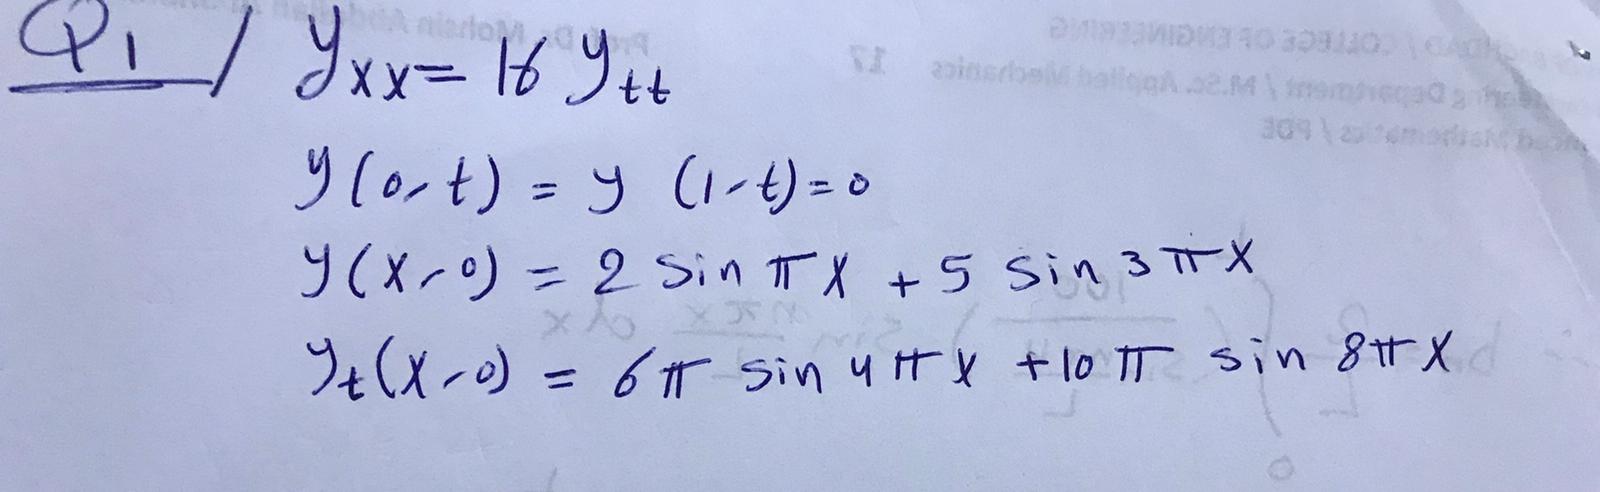 Q1 / yxx = 16 ytt
y(0,t) = y (1,t) = 0
y(x,0) = 2 sin πx + 5 sin 3πx
yt(x,0) = 6π sin 4πx + 10π sin 8πx